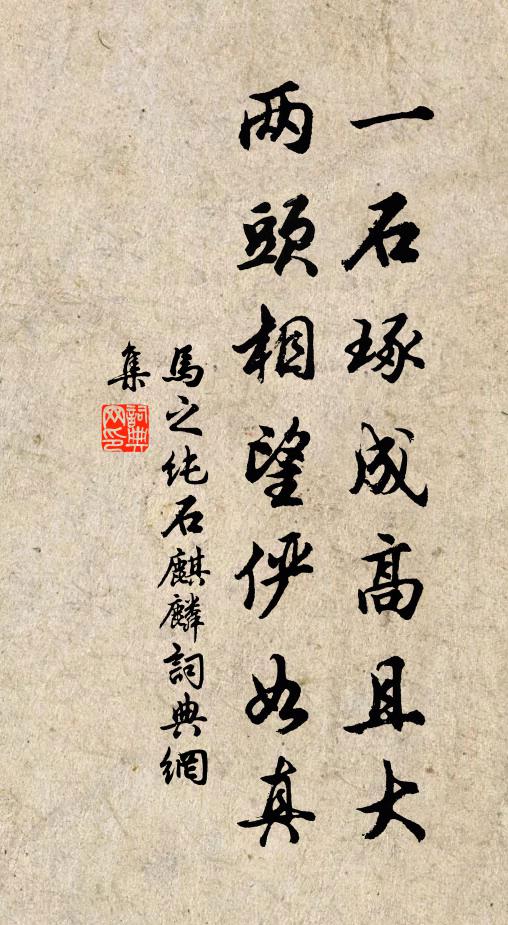 一石琢成高且大
两頭相望俨如真
馬之純石麒麟詞典網
集
詞典网印